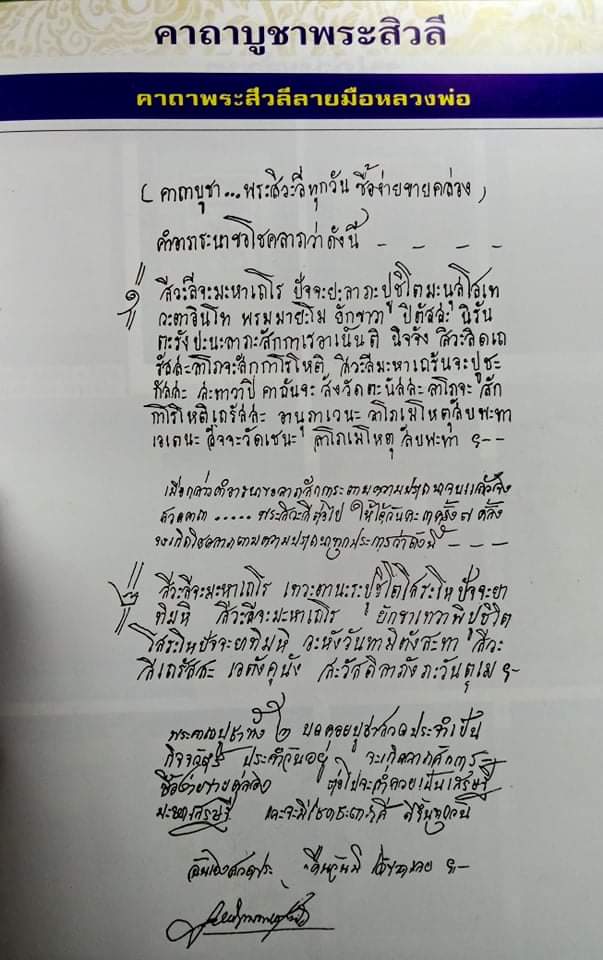 คาถาบูชาพระสิวลี
คาถาพระสีวลีลายมือหลวงพ่อ
(คาถาบูชา...พระสิวะลีทุกวัน ซื้อง่ายขายคล่อง)
คำอาราธนาขอโชคลาภว่าดังนี้ - - - -
๑ สีวะลีจะมะหาเถโร ปัจจะยะลาภะปูชิโตมะนุสโสเท
วะตาอินโท พรหมมายะโม ยักขาวา ปิตัสสะ นิรัน
ตะรังปะนะลาภะสักกาเรอาเนันติ นิจจัง สีวะลิดเถ
รัสสะลาโภจะสักกาโรโหติ สีวะลีมะหาเถรันจะปูชะ
กัสสะ สะทาวาปี คาฉันจะ สังวัดตะนัสสะ ลาโภจะ สัก
กาโรโหติเถรัสสะ อานุภาเวนะ ลาโภเมโหตุสัพพะทา
เอเตนะ สัจจะวัดเชนะ ลาโภเมโหตุ สัพพะทา ฯ--
สวดคาถา ..... พระสิวะลีต่อไป ให้ได้วันละ ๓ ครั้ง ๗ ครั้ง
จะเกิดโชคลาภตามความปรารถนาทุกประการว่าดังนี้ - - -
๒ สีวะลีจะมะหาเถโร เทวะตานะระปูชิโตโสระโหปัจจะยา
ทิมหิ สีวะลีจะมะหาเถโร ยักขาเทวาพิปูชิโต
โสระโหปัจจะยาทิมหิ อะหังวันทามิตังสะทา สีวะ
สีเถรัสสะ เอตังคุนัง สะวัสดิลาภังภะวันตุเม ฯ-
พระคาถาบูชาทั้ง ๒ บทคอยบูชาสวดประจำเป็น
กิจวัตร์ ประจำวันอยู่ จะเกิดลาภสักการะ
ซื้อง่ายขายคล่อง ต่อไปจะร่ำรวยเป็นเศรษฐี
มะหาเศรษฐี และจะมีโชคชะตาดี ดีขึ้นทุกวัน